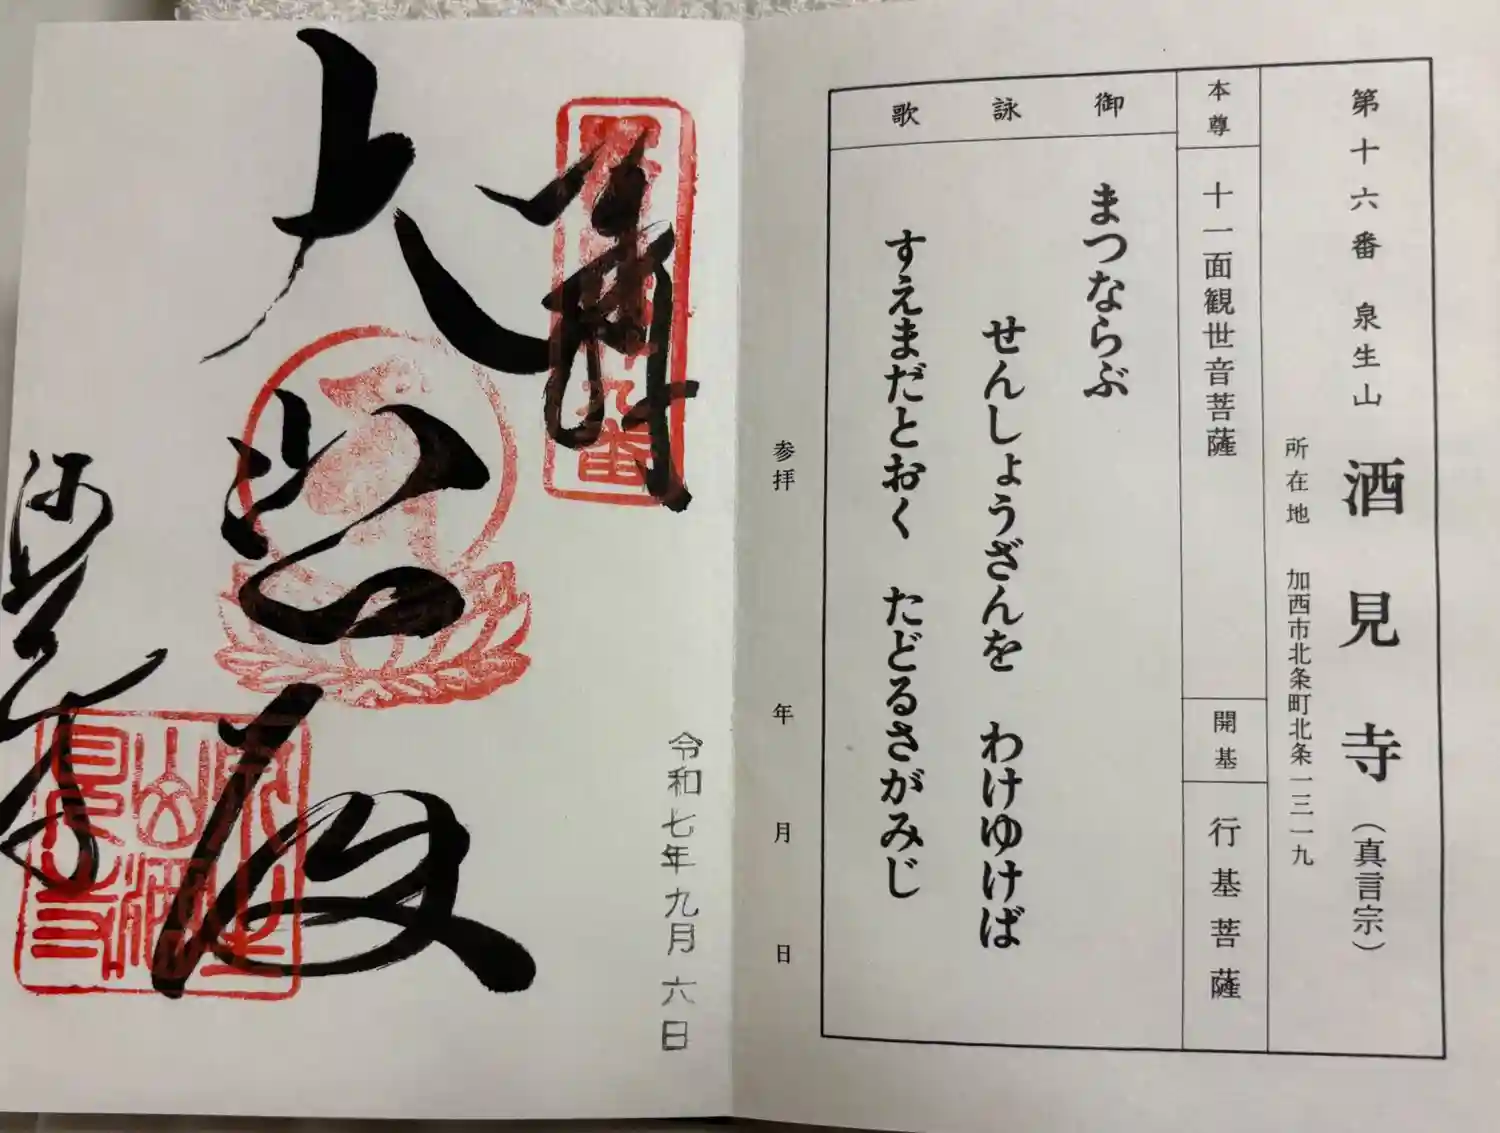 第十六番 泉生山 酒見寺（真言宗）
所在地 加西市北条町北条一三一九
本尊
十一面観世音菩薩
開基
行基菩薩
御詠歌
まつならぶ
せんしょうざんを わけゆけば
すえまだとおく たどるさがみじ
参拝 年 月 日
令和七年九月六日
奉拝
九番
大悲殿
酒見寺